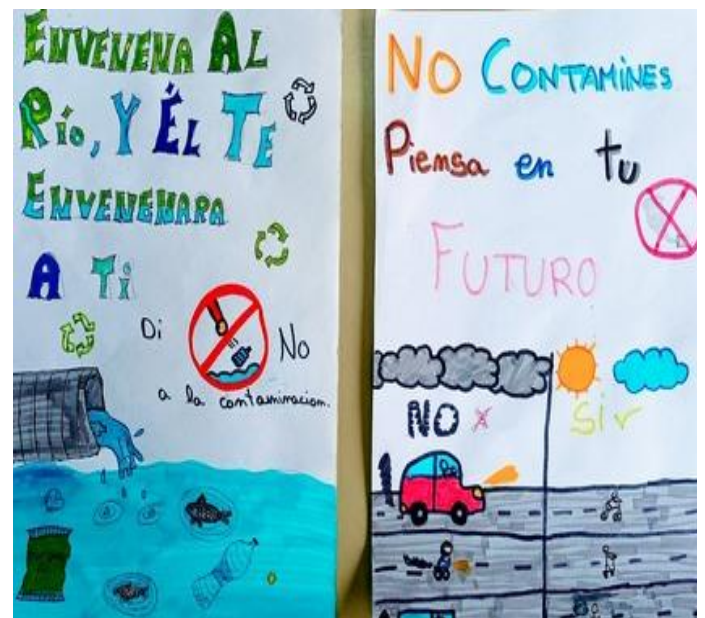 ENVENENA AL
Río, Y ÉL TE
ENVENENARA
A Ti
Di NO
a la contaminacion.
NO CONTAMINES
Piensa en tu
FUTURO
NO x
Si ✓